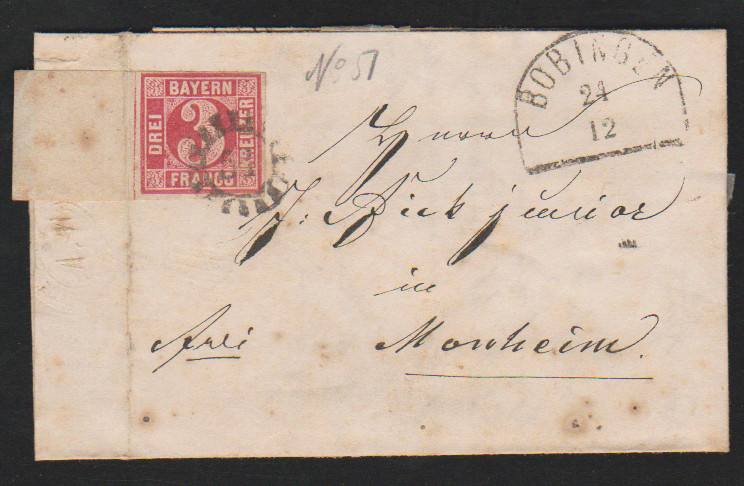 No 51
BAYERN
DREI
3
KREUZER
FRANCO
BOBINGEN
24
12
Herrn
J. Dick junior
in
frei
Monheim.